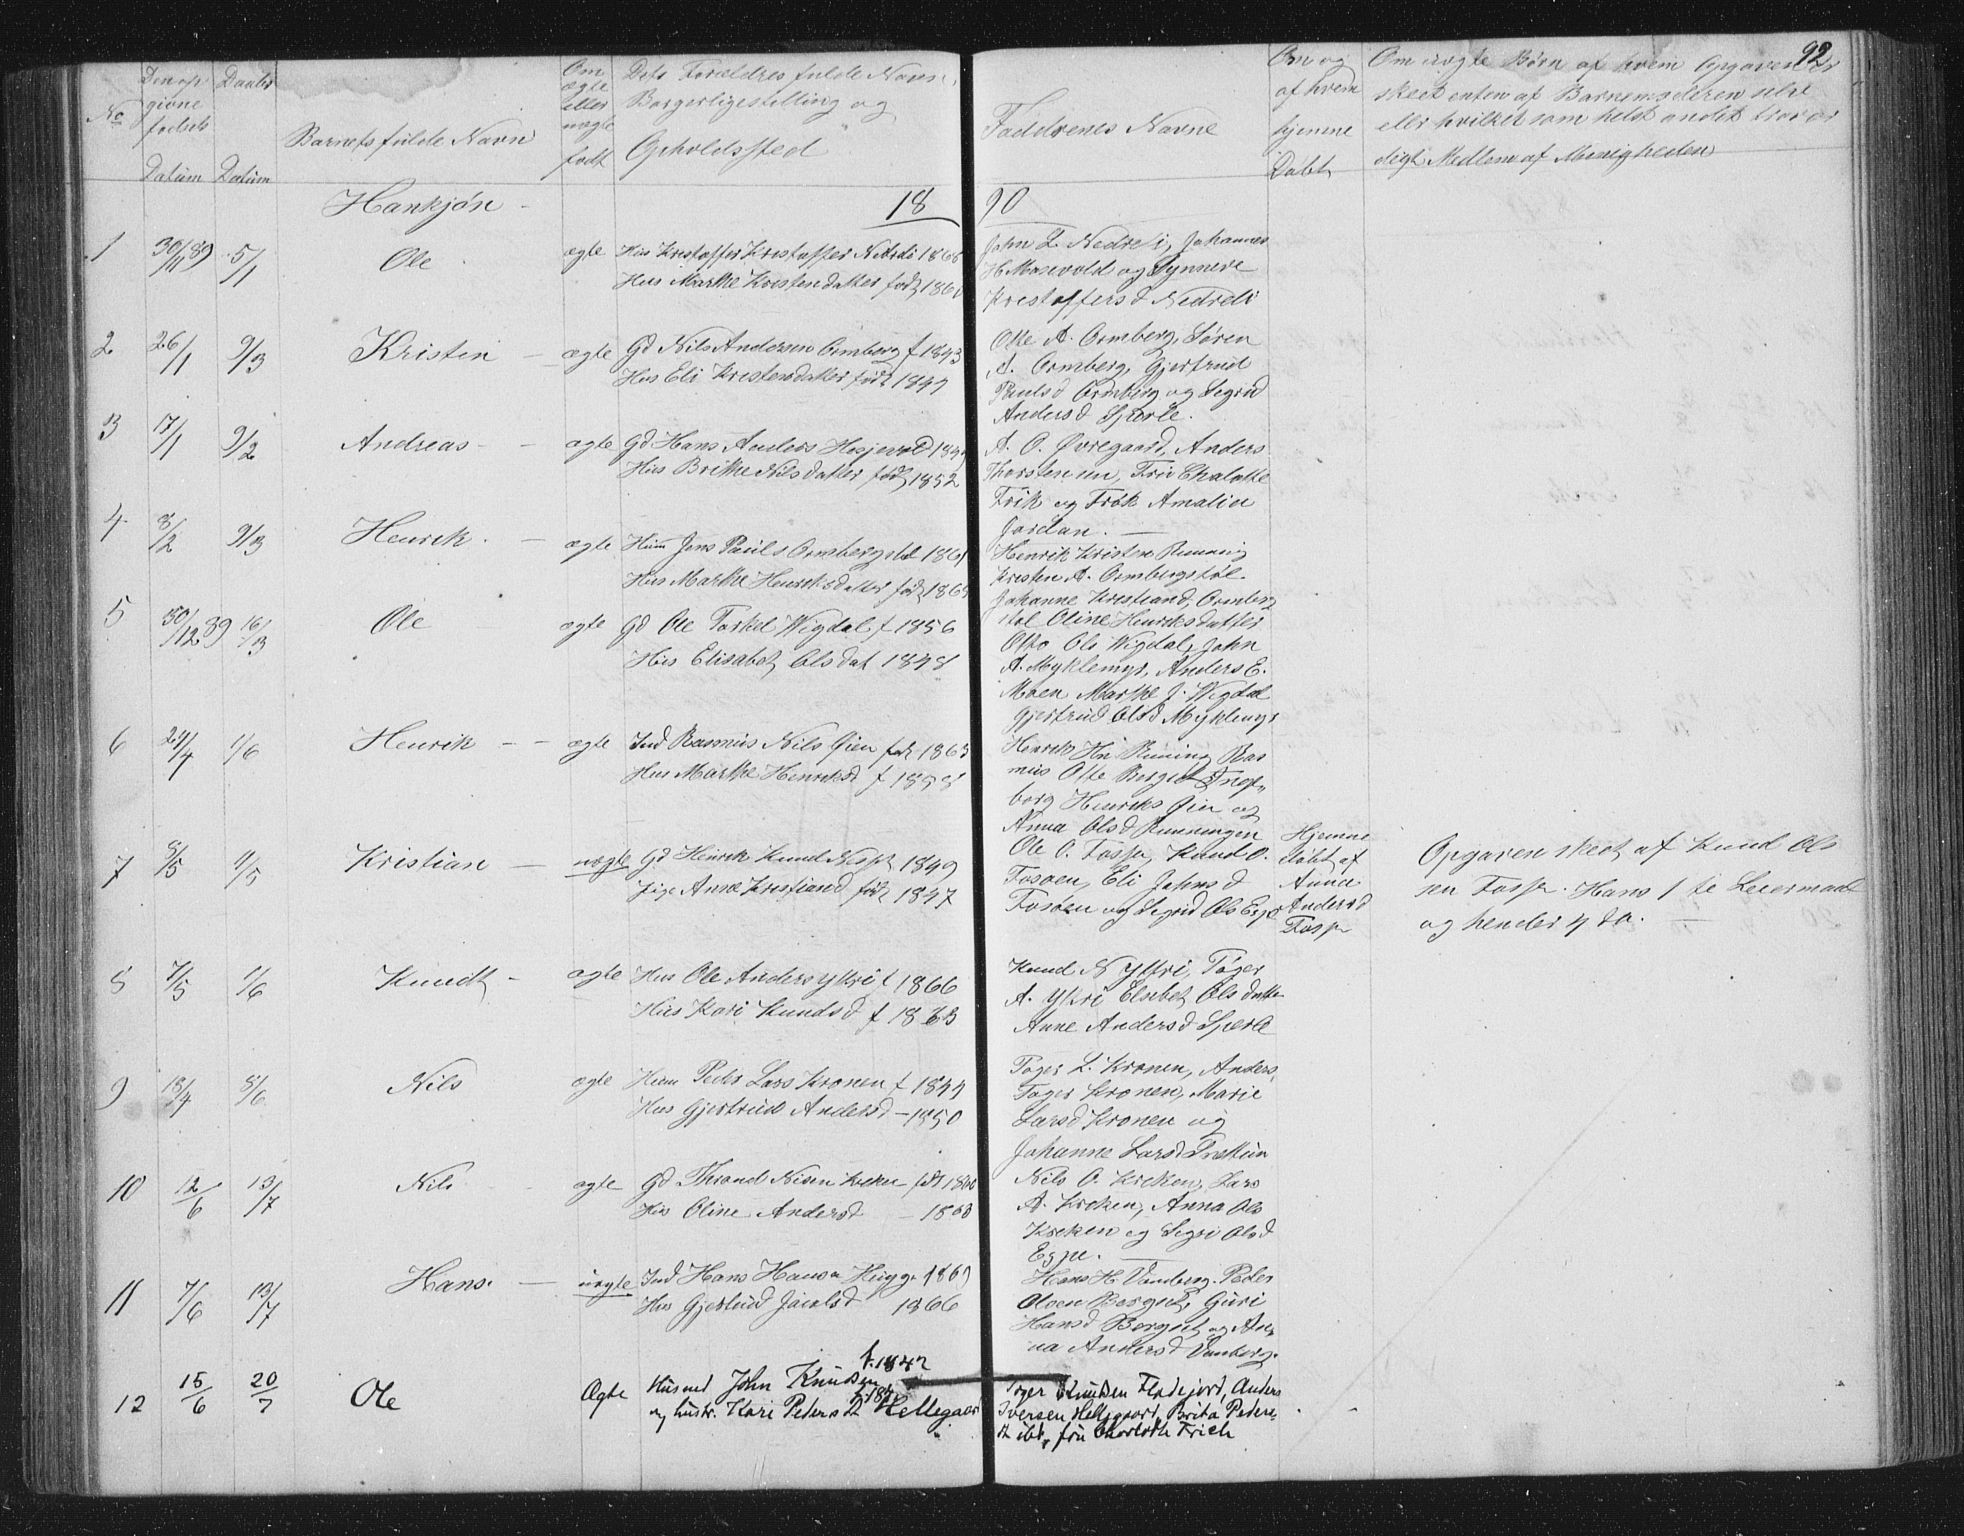 92
No
Den op
givne
fødsels
Datum
Daabs
Datum
Barnets fulde Navn
Om
ægte
eller
uægte
født
Dets Forældres fulde Navn,
Borgerligestilling og
Opholdssted
Faddernes Navne
Om og
af hvem
hjemme
Døbt
Om uægte Børn af hvem Opgaven er
skeet enten af Barnemoderen selv
eller hvilket som helst andet trovær
digt Medlem af Menigheden
Hankjøn
18 90
1 30/11 89 5/1 Ole ægte
Hus Kristoffer Kristoffer Nedreli 1868
Hus Marthe Kristendatter født
John L. Nedreli, Johannes
H. Moevold og Synneve
Kristoffersd Nedreli
2 26/1 9/3 Kristen ægte
Gd Nils Andersen Ormberg f 1843
Hus Eli Kristensdatter født 1847
Ole A. Ormberg, Søren
A. Ormberg, Gjertrud
Paulsd Ormberg og Segrid
Andersd Sperle.
3 17/1 9/2 Andreas ægte
Gd Hans Anders Hesjevold
Hus Brithe Nilsdatter født 1852
A. O. Øvregaard, Anders
Thorstensen, Frü Chalotte
Frik og Frøk Amalia
Jordan.
4 8/2 9/3 Henrik ægte
Hum Jens Pauls Ormbergstøl
Hus Marthe Henriksdatter født
Henrik Kristen Running
Kristen A. Ormbergstøl.
Johanne Kristiand, Ormberg
støl Oline Henriksdatter
5 30/12 89 16/3 Ole ægte
Gd Ole Torkel Wigdal f 1856
Hus Elisabet Olsdat 1848
Otto Ols Wigdal, John
A. Myklemyr, Anders E.
Moen Marthe J. Wigdal
Gjertrud Olsd Myklemyr
6 24/4 1/6 Henrik ægte
Ind Rasmus Nils Øien født 1863
Hus Marthe Henriksd f 1858
Henrik Hn Running Ras
mus Otte Berget Inge,
borg Henriks Øien og
Anna Olsd Runningen
7 8/5 11/5 Kristian uægte
Gd Henrik Knud Nesp 1849
Pige Anne Kristiand født 1847
Ole O. Fosse, Knud O.
Fosøen, Eli Johnsd
Fosøen og Segrid Ols Espe
Hjemme
døbt af
Anna
Andersd
Fosse
Opgaven skeet af Knud Ols
sen Fosse. Hans 1ste Leiermaal
og hendes 4 do.
8 7/5 1/6 Knudt ægte
Hus Ole Anders Ytri f 1866
Hus Kari Knudsd f 1863
Knud N Ytri, Tøger
A. Ytri Elsebet Ols datter
Anne Andersd Sperle
9 18/4 8/6 Nils ægte
Hum Peder Lars Kronen f 1844
Hus Gjertrud Andersd - 1850
Tøger L. Kronen, Anders,
Tøger Kronen, Marie
Larsd Kronen og
Johanne Larsd Trættün
10 12/6 13/7 Nils ægte
Gd Thrond Nilsen Kreken født
Hus Oline Andersd - 1860
Nils O. Kreken, Lars
A. Kreken, Anna Ols
Kreken og Segri Olsd
Espe.
11 7/6 13/7 Hans. uægte
Ind Hans Hansn Hugge 1869
Hus Gjertrud Jacobsd 1866
Hans H. Vanberg. Peder
Olsen Berget, Guri
Hansd Berget og An,
na Andersd Vanberg.
12 15/6 20/7 Ole Ægte
Husmd John Knudsen f. 1842
og hustr. Kari Pedersdt Hellegaar
Tøger Knudsen Flahejord, Anders
Iversen Hellegaard, Brita Peders,
dt ibd, frü Charlotte Frich